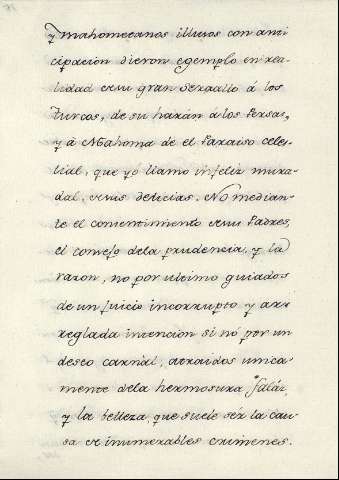 y mahometanos illusos con anti
cipación dieron egemplo en rea-
lidad en su gran serrallo á los
Turcos, de su harán á los Persas,
y á Mahoma de el Paraiso celes-
tial, que yó llamo infeliz mura-
dal, en sus delicias. No median-
te el consentimiento en sus Padres,
el consejo dela prudencia, y la
razon, no por ultimo guiados
de un juicio incorrupto y arr
reglada intencion si nó por un
deseo carnal, atraidos unica-
mente dela hermosura faláz,
y la belleza, que suele sér la cau-
sa de inumerables crimenes.